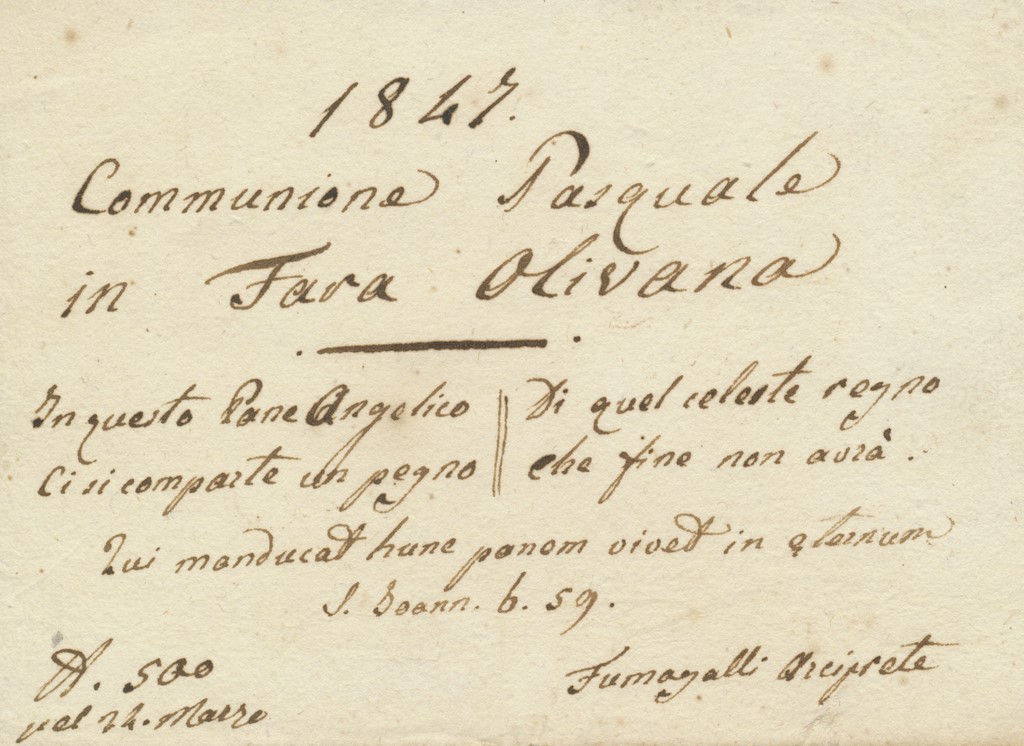 1847.
Communione Pasquale
in Fara Olivana
In questo Pane Angelico
Ci si comparte un pegno
Di quel celeste regno
che fine non avrà.
Qui manducat hunc panem vivet in ęternum
S. Joann. 6. 59.
N. 500
pel 24. Marzo
Fumagalli Arciprete